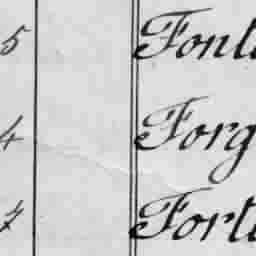 5 Font
4 Forg
7 Fort